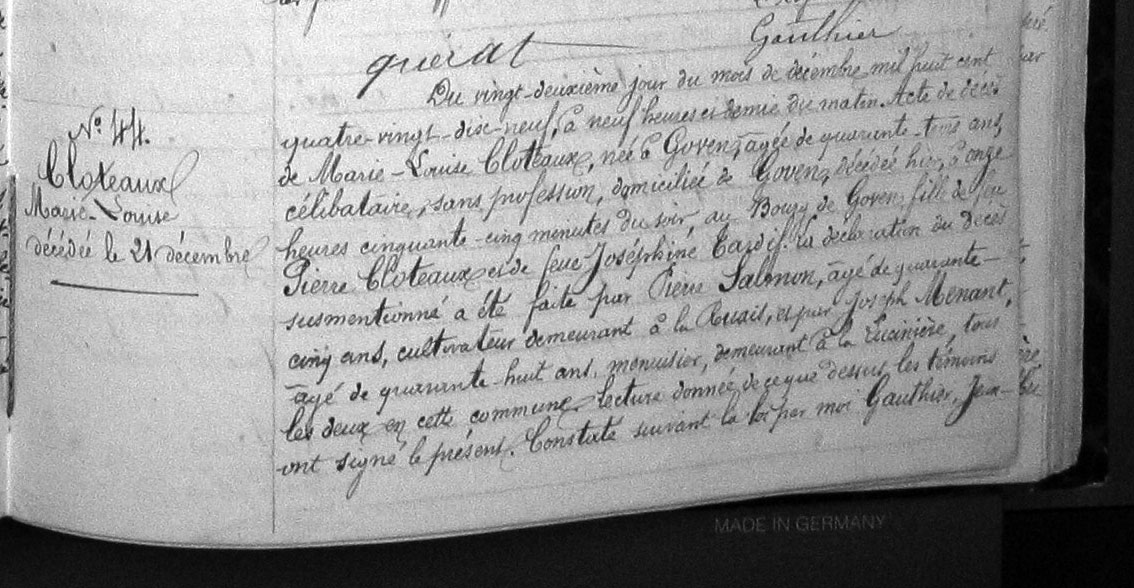 Gauthier
guérat
N° 44.
Cloteaux
Marie-Louise
décédée le 21 décembre
Du vingt-deuxième jour du mois de décembre mil huit cent
quatre-vingt-dix-neuf, à neuf heures et demie du matin. Acte de décès
de Marie-Louise Cloteaux, née à Goven, âgée de quarante-trois ans,
célibataire, sans profession, domiciliée de Goven, décédée hier, à onze
heures cinquante-cinq minutes du soir, au Bourg de Goven, fille de feu
Pierre Cloteaux et de feue Joséphine Tardif. la déclaration du décès
susmentionné a été faite par Pierre Salmon, âgé de quarante-
cinq ans, cultivateur demeurant à la Ruais, et par Joseph Menant,
âgé de quarante-huit ans, menuisier, demeurant à la Lucinière, tous
les deux en cette commune. Lecture donnée de ce que dessus, les témoins
ont signé le présent. Constaté suivant la loi par moi Gauthier, Jean-
MADE IN GERMANY